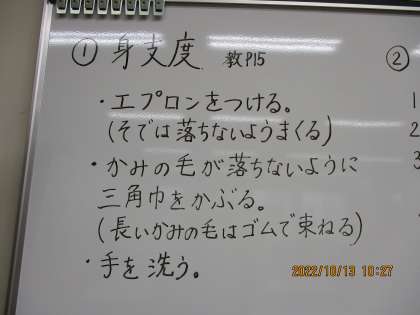 ① 身支度 教P15
・エプロンをつける。
(そでは落ちないようまくる)
・かみの毛が落ちないように
三角巾をかぶる。
(長いかみの毛はゴムで束ねる)
・手を洗う。
②
1
2
3
2022/10/13 10:27